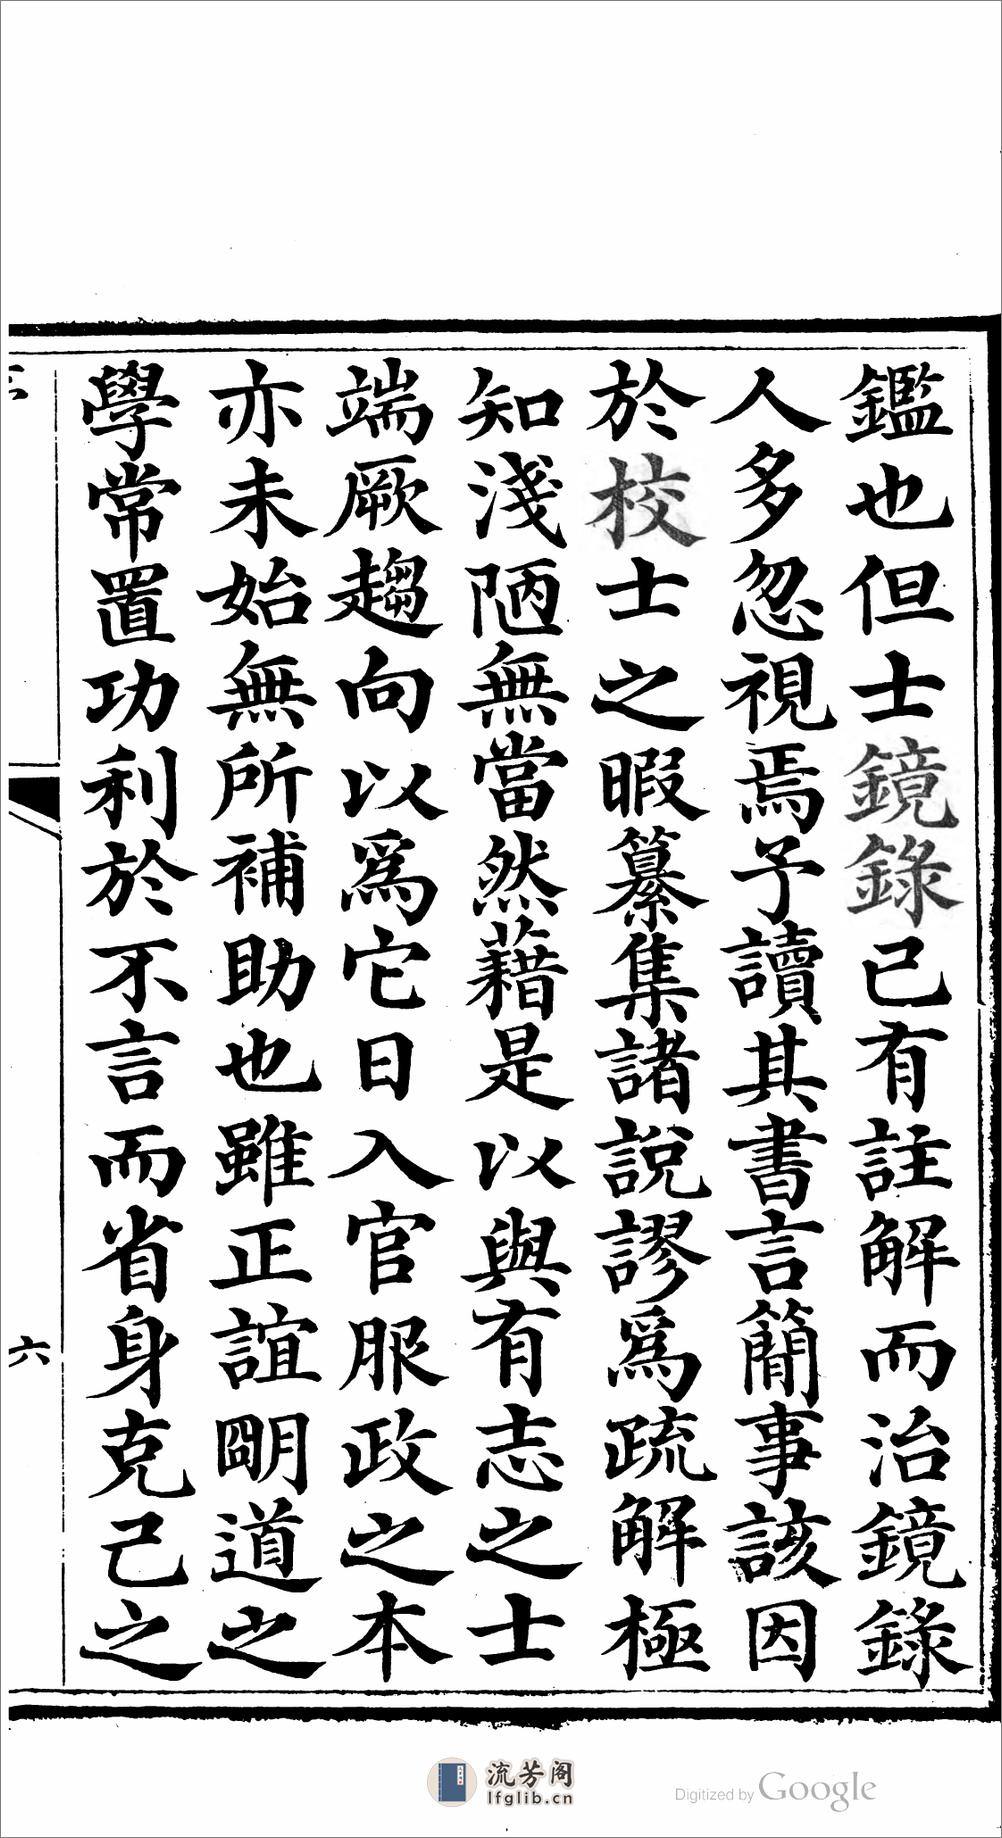 鑑也但士鏡錄已有註解而治鏡錄
人多忽視焉予讀其書言簡事該因
於校士之暇纂集諸說謬爲疏解極
知淺陋無當然藉是以與有志之士
端厥趨向以爲它日入官服政之本
亦未始無所補助也雖正誼明道之
學常置功利於不言而省身克己之
六
流芳阁
lfglib.cn
Digitized by Google